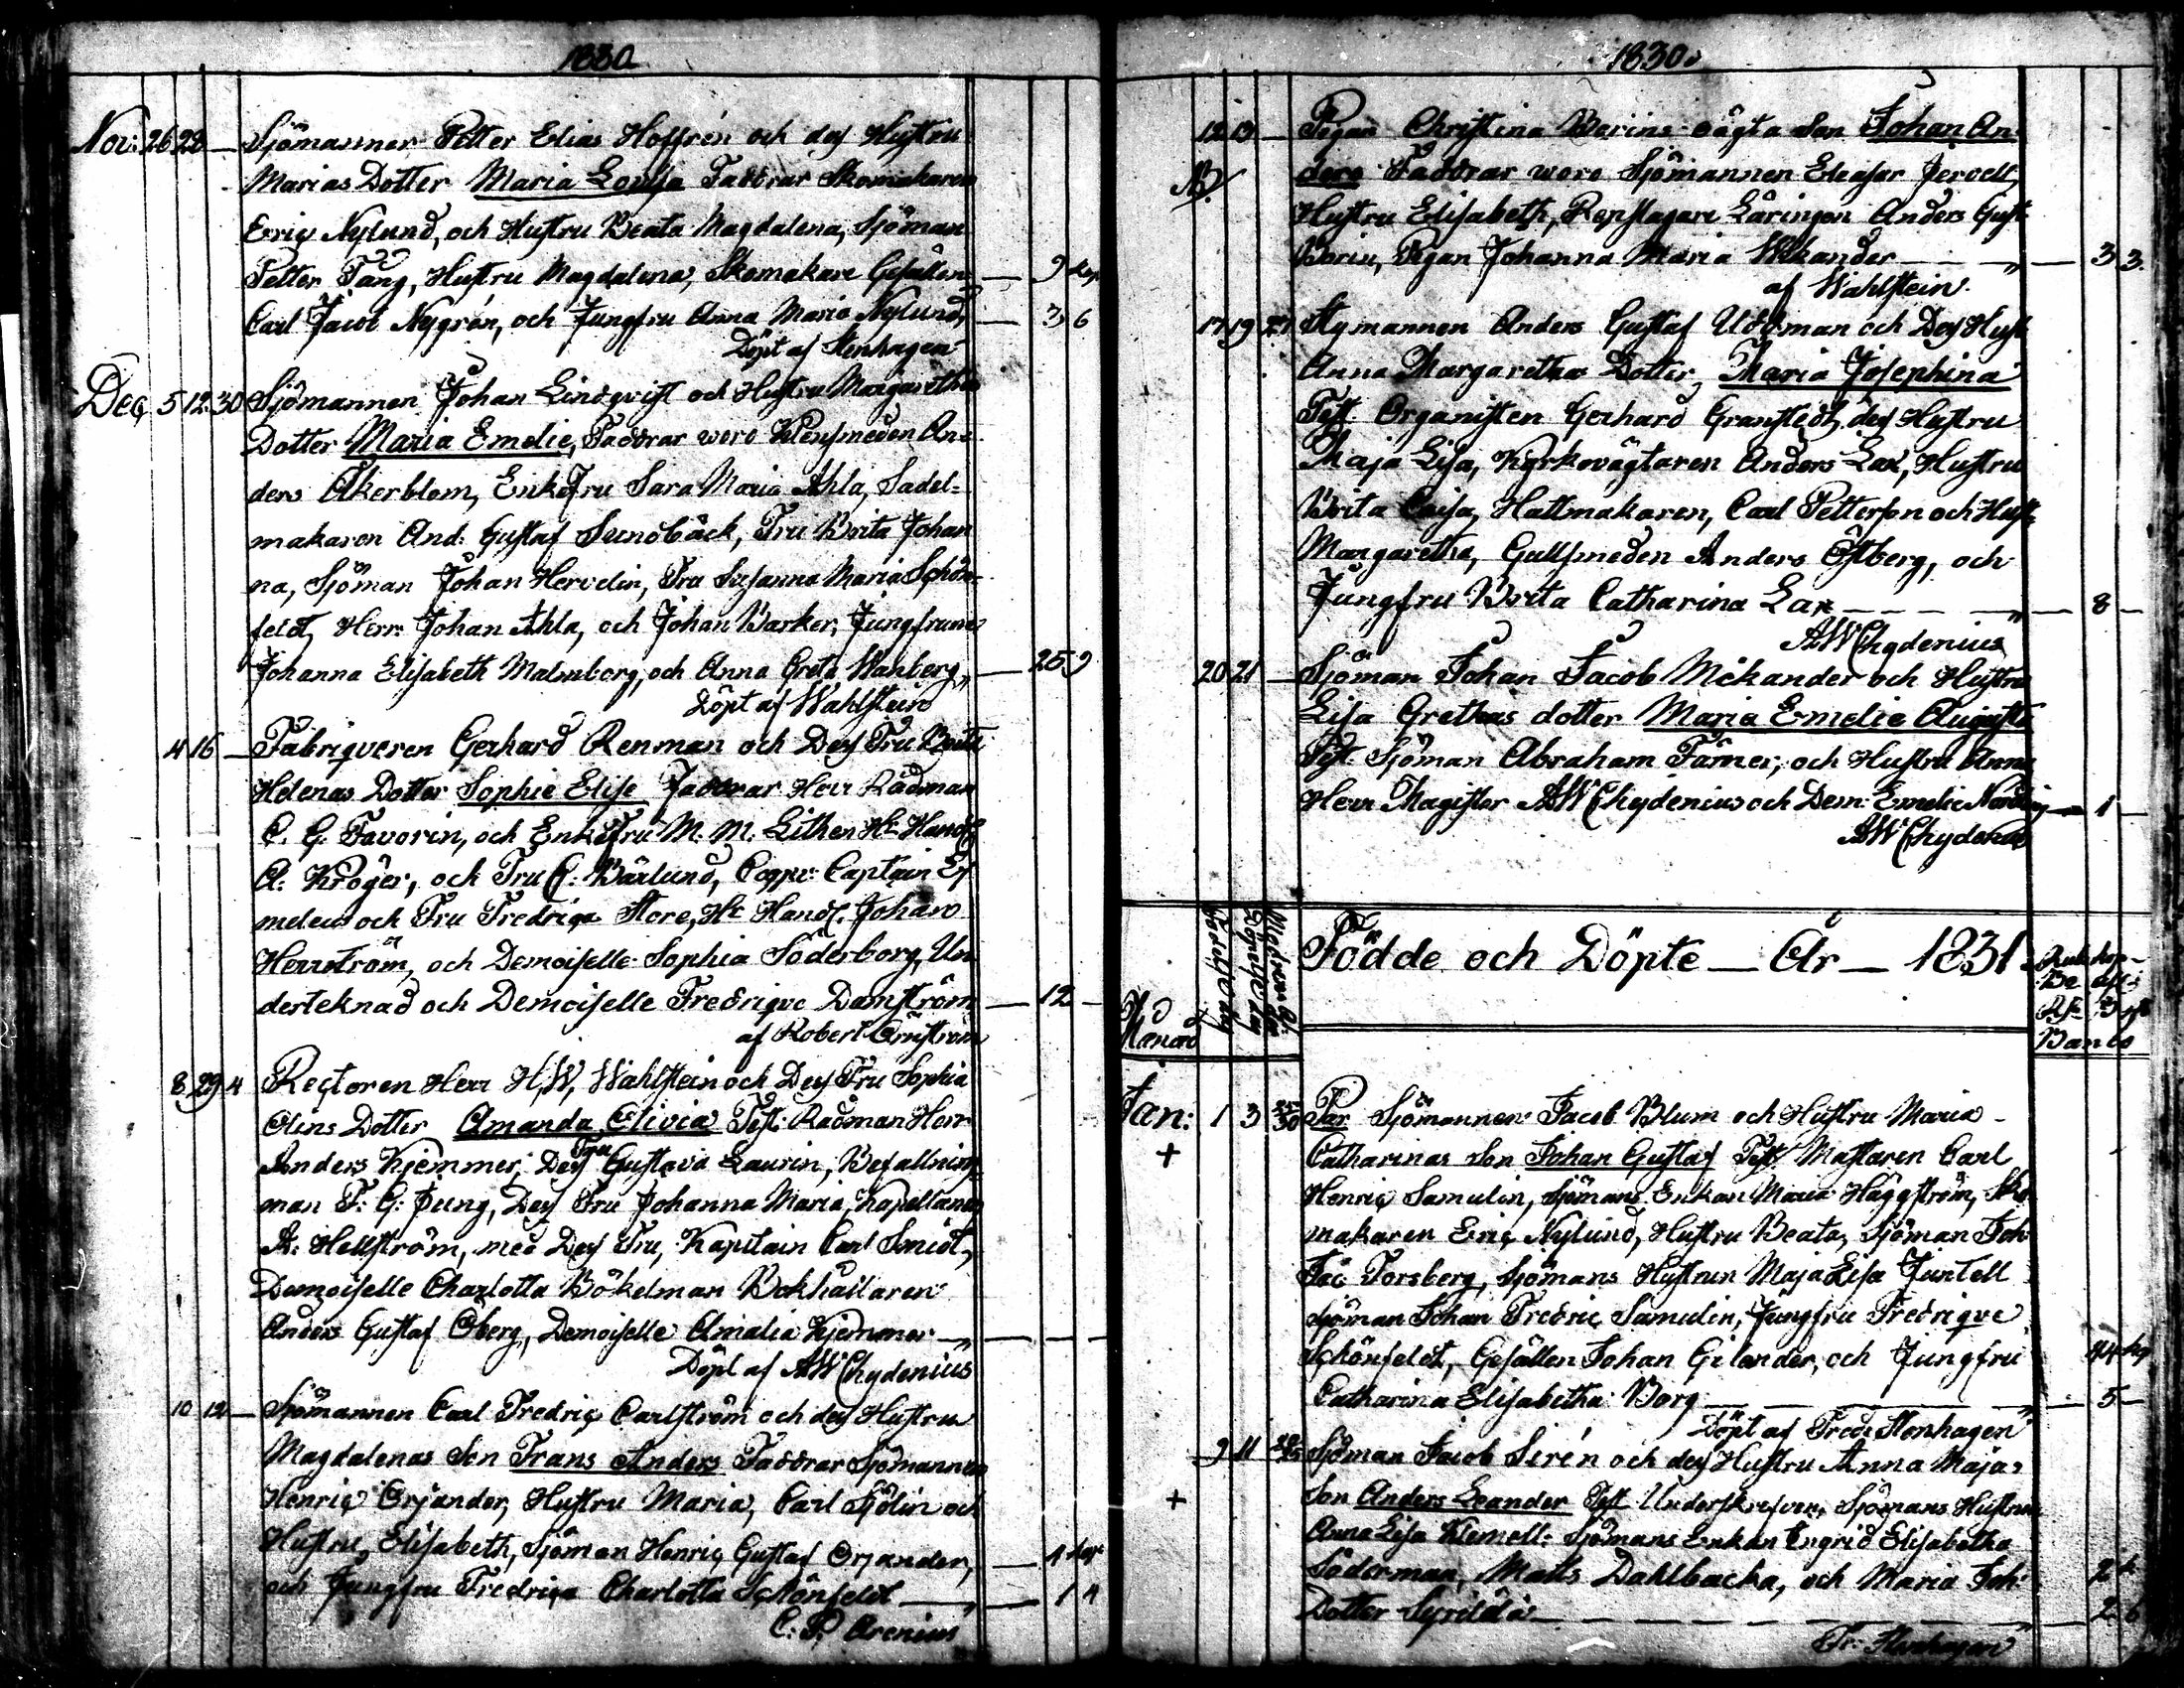 1830
Nov: 26 28 — Sjömannen Petter Elias Hoffrén och des Hustru
Marias Dotter Maria Lovisa Faddrar Skomakaren
Eric Nylund, och Hustru Beata Magdalena, Sjöman
Petter Tång, Hustru Magdalena, Skomakare Gesällen — 9 kop
Carl Jacob Nygrén, och Jungfru Anna Maria Nylund, — 3 6
Döpt af Stenhagen
Dec 5 12 30 Sjömannen Johan Lindqvist och Hustru Margarethas
Dotter Maria Emelie, Faddrar woro Klensmeden An-
ders Åkerblom, Enkefru Sara Maria Ahla, Sadel-
makaren And. Gustaf Sundbäck, Fru Brita Johan
na, Sjöman Johan Hervelin, Fru Susanna Maria Schön-
feldt, Herr Johan Ahla, och Johan Barker, Jungfruna
Johanna Elisabeth Malmborg, och Anna Greta Wanberg — 25 9
Döpt af Wahlstein
4 16 — Fabriqveren Gerhard Renman och Des Fru Brita
Helenas Dotter Sophie Elise Faddrar Herr Rådman
C. G. Favorin, och Enkefru M. M. Lithen Hr Handl
A. Kröger, och Fru C. Bärlund, Coppv: Captain Es
meleus och Fru Fredriqa Store, Hr Handl. Johan
Herrström, och Demoiselle Sophia Söderborg, Un
derteknad och Demoiselle Fredriqve Damström — 12 —
af Robert
8 29 4 Rectoren Herr H. W. Wahlstein och Des Fru Sophia
Olins Dotter Amanda Olivia Test. Rådman Herr
Anders Kjemmer, Des Fru Gustava Laurin, Befallnings
man F. G. Ljung, Des Fru Johanna Maria, Kapellanen
A. Hellström, med Des Fru, Kapitain Carl Smidt,
Demoiselle Charlotta Bökelman Bokhållaren
Anders Gustaf Öberg, Demoiselle Amalia Kjemmer —
Döpt af AWChydenius
10 12 — Sjömannen Carl Fredric Carlström och des Hustru
Magdalenas Son Frans Anders Faddrar Sjömannen
Henric Orjander, Hustru Maria, Carl Sjölin och
Hustru Elisabeth, Sjöman Henric Gustaf Orjander, — 4 kop
och Jungfru Fredriqa Charlotta Schönfeldt — 1 4
C. P. Arenius
1830
12 13 — Pigan Christina Borins oägta Son Johan An
ders Faddrar woro Sjömannen Eleasar Jervell,
Hustru Elisabeth, Repslagare Läringen Anders Gust
Borin, Pigan Johanna Maria Wikander — 3 3
af Wahlstein
17 19 27 Stymannen Anders Gustaf Uddman och Des Hust
Anna Margaretha Dotter, Maria Josephina
Test. Organisten Gerhard Granstedt, des Hustru
Maja Lisa, Kyrkovägtaren Anders Lax, Hustru
Brita Caisa, Hattmakaren, Carl Petterson och Hust
Margaretha, Gullsmeden Anders Östberg, och
Jungfru Brita Catharina Lax — 8 —
AWChydenius
20 21 — Sjöman Johan Jacob Mikander och Hustru
Lisa Grethas dotter Maria Emelie Augusta
Test. Sjöman Abraham Farner, och Hustru Anna
Herr Magister AWChydenius och Dem: Emelie — 1 —
AWChydenius
Födde och Döpte — År — 1831
Månad
Banco
Jan: 1 3 Par Sjömannen Jacob Blum och Hustru Maria
+ Catharinas Son Johan Gustaf Test Mastaren Carl
Henric Samulin, Sjömans Enkan Maria Häggström, Sko
makaren Eric Nylund, Hustru Beata, Sjöman Joh
Jac Forsberg, Sjömans Hustrun Maja Lisa Juntell
Sjöman Johan Fredric Samulin, Jungfru Fredriqve
Schönfeldt, Gesällen Johan Gilander, och Jungfru
Catharina Elisabetha Borg — 5 —
Döpt af Fredr Stenhagen
9 11 Sjöman Jacob Sirén och des Hustru Anna Majas
+ Son Anders Leander Test Underskrefven, Sjömans Hustrun
Anna Lisa Klemell: Sjömans Enkan Ingrid Elisabetha
Söderman, Matts Dahlbacka, och Maria Joh:
Dotter — 2 6
Fr: Stenhagen